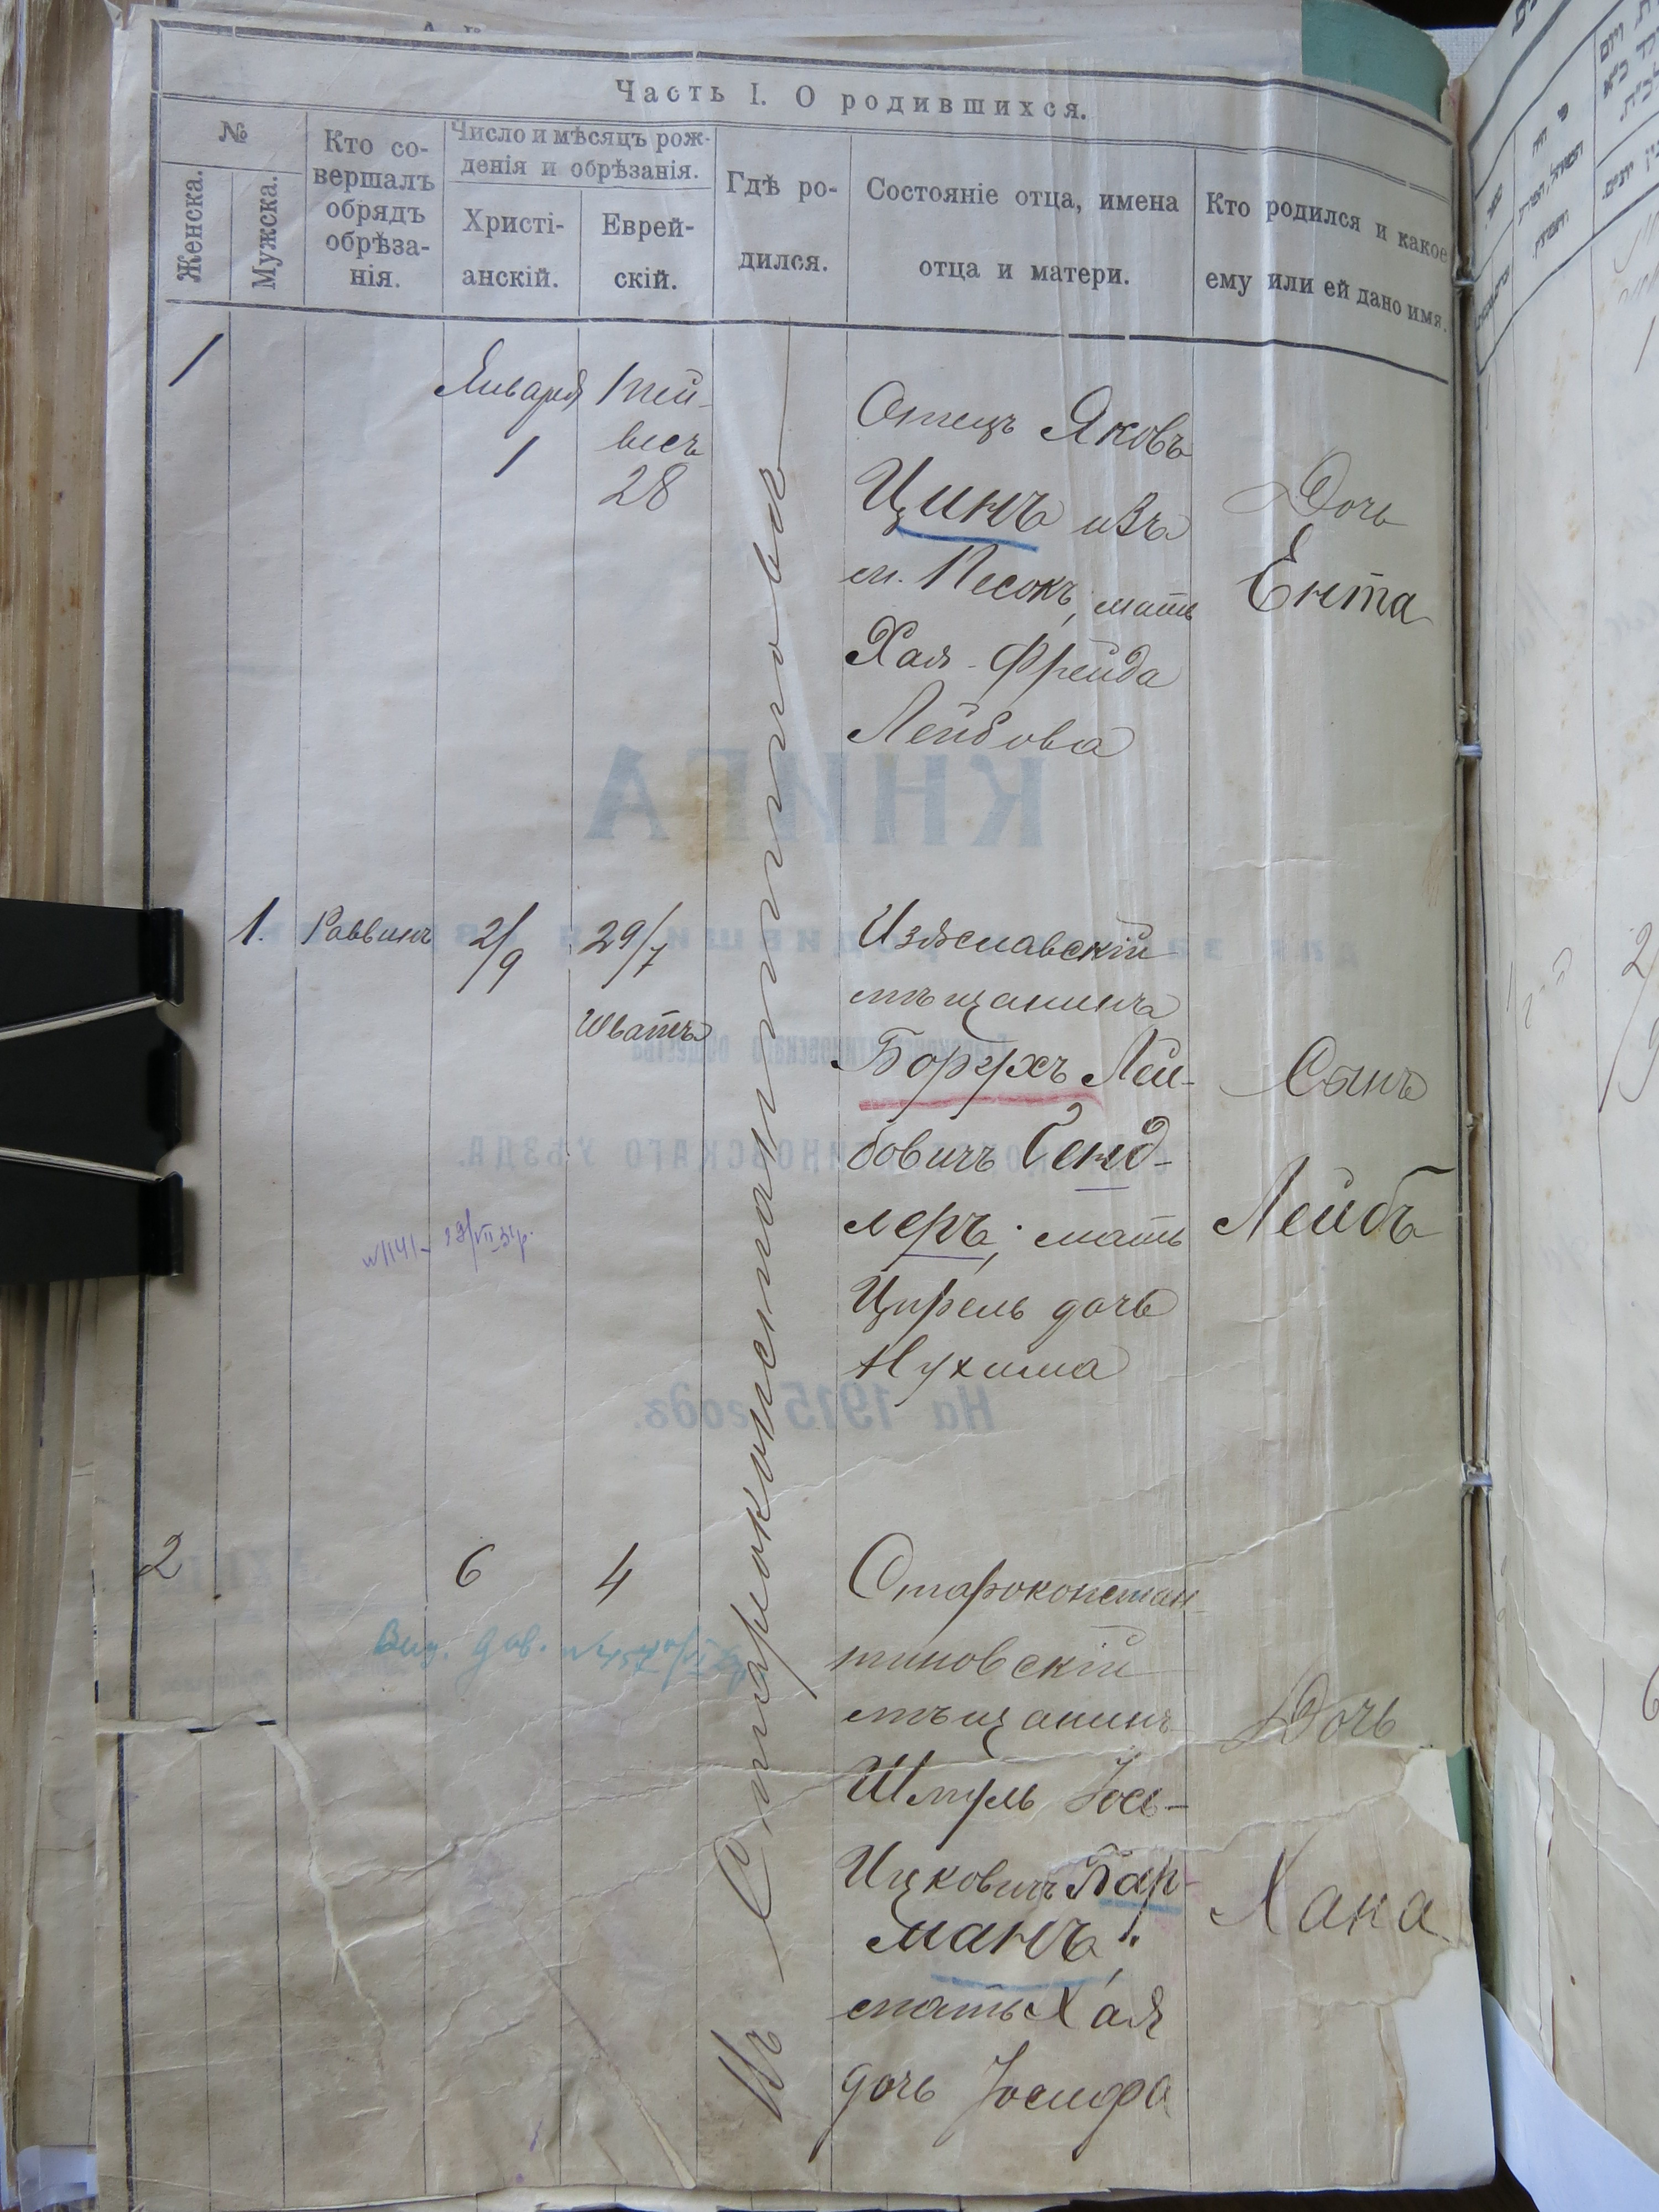 Часть I. О родившихся.
№
Женска.
Мужска.
Кто со-
вершалъ
обрядъ
обрѣза-
нія.
Число и мѣсяцъ рож-
денія и обрѣзанія.
Христі-
анскій.
Еврей-
скій.
Гдѣ ро-
дился.
Состояніе отца, имена
отца и матери.
Кто родился и какое
ему или ей дано имя.
1
Января
1
Тей-
весъ
28
Въ Староконстантиновѣ
Отецъ Яковъ
Цинъ изъ
м. Песокъ, мать
Хая-Фрейда
Лейбова
Дочь
Ента
1.
Раввинъ
2/9
29/7
Шватъ
Изяславскій
мѣщанинъ
Борухъ Лей-
бовичъ Сенд-
леръ; мать
Ципрель дочь
Нухима
Сынъ
Лейбъ
2
6
4
Староконстан-
тиновскій
мѣщанинъ
Шмуль Іось-
Ицковичъ Бар-
манъ;
мать Хая
дочь Іосифа
Дочь
Хана
КНИГА
СТАРОКОНСТАНТИНОВСКАГО УѢЗДА.
На 1915 годъ.